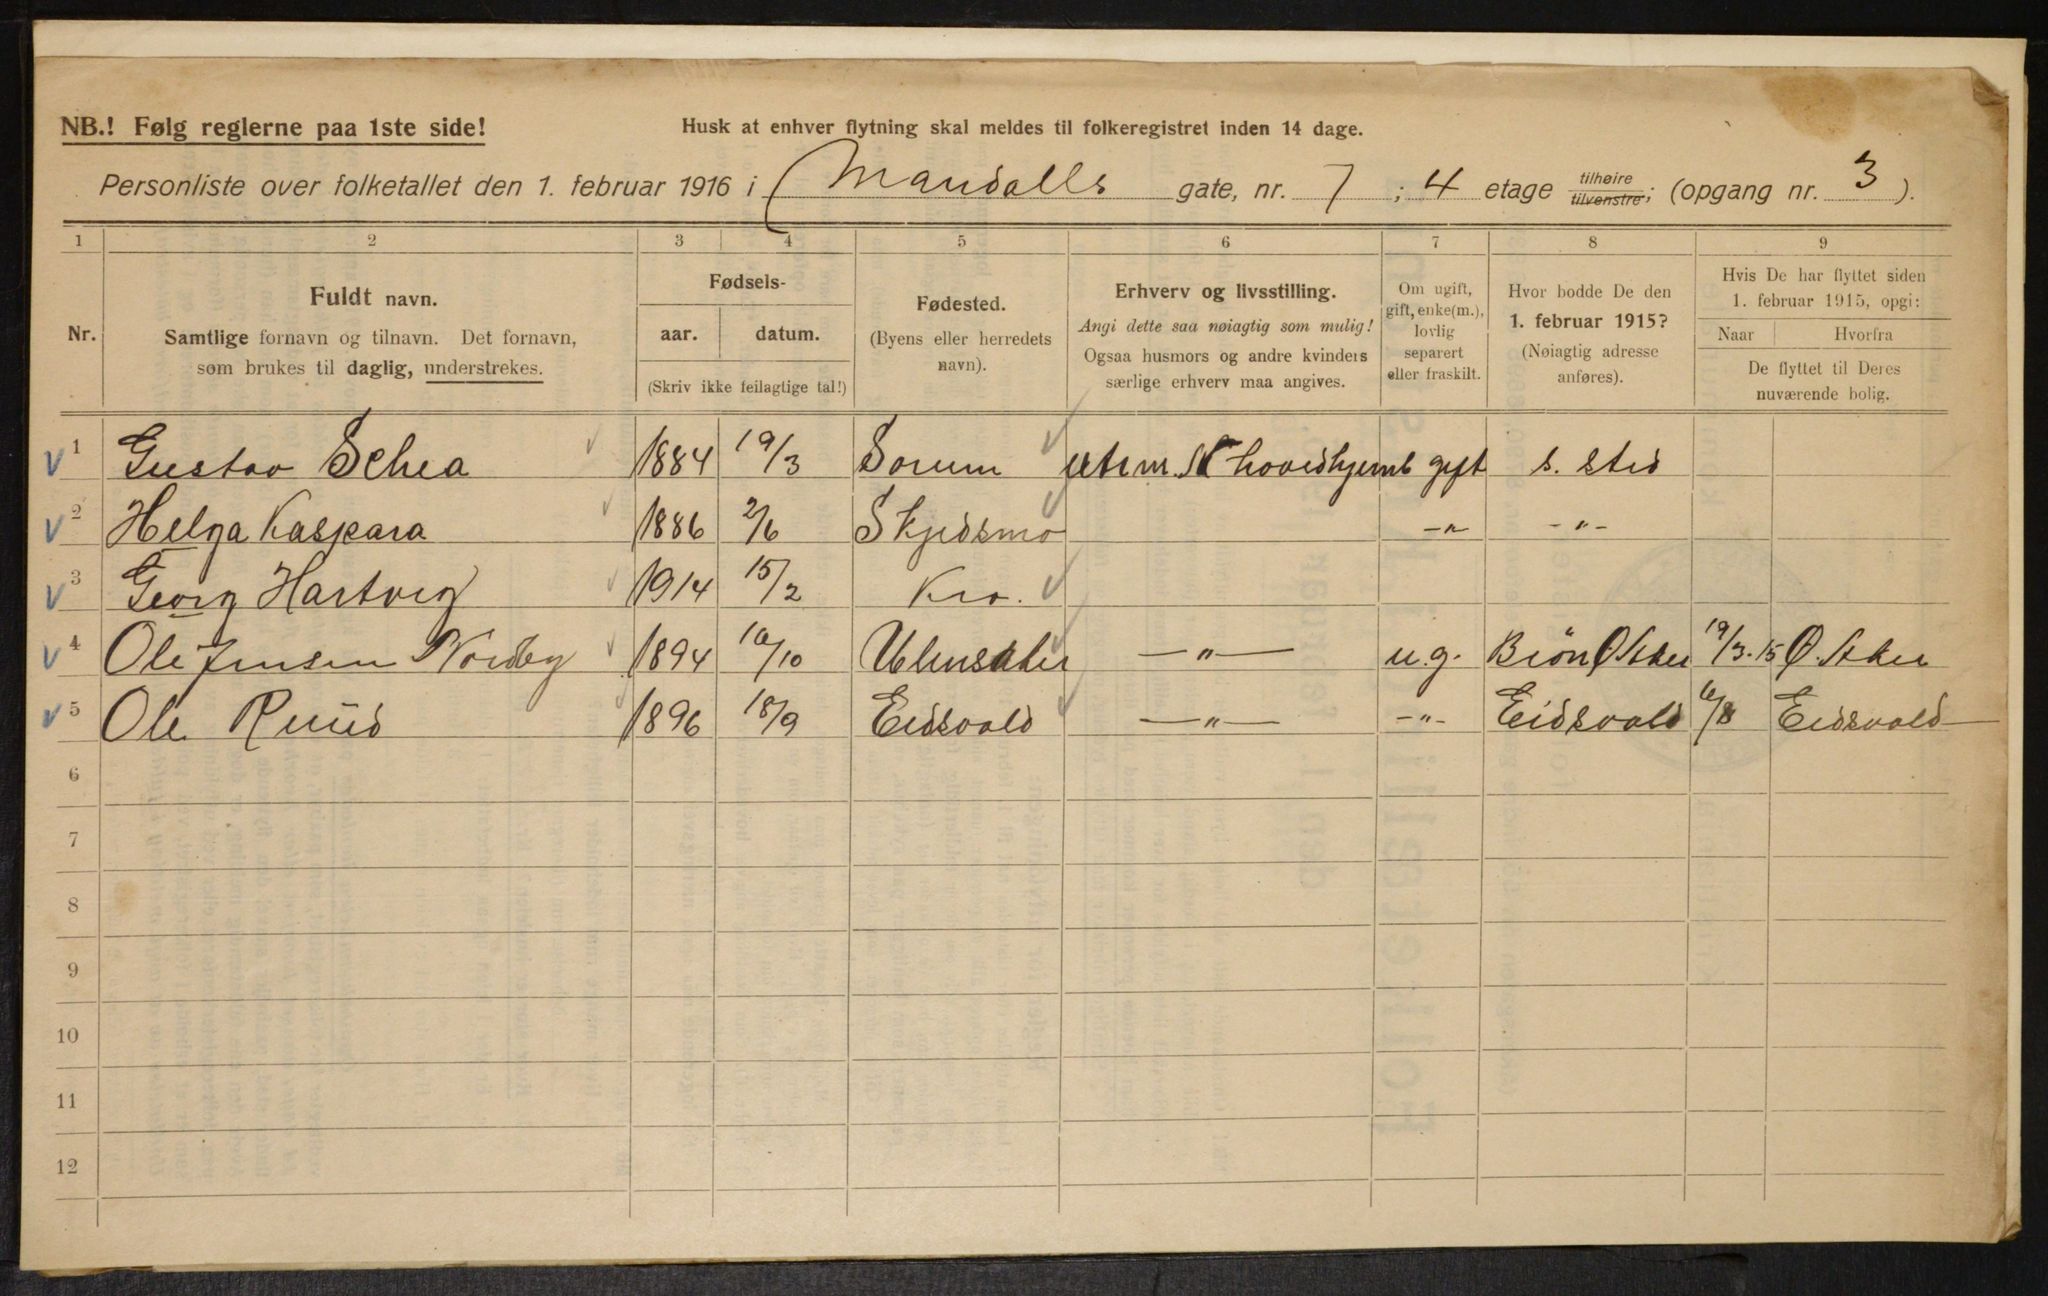 NB.! Følg reglerne paa 1ste side!
Husk at enhver flytning skal meldes til folkeregistret inden 14 dage.
Personliste over folketallet den 1. februar 1916 i Mandalls gate, nr. 7 ; 4 etage tilhøire tilvenstre; (opgang nr. 3 ).
1 2 3 4 5 6 7 8 9
Nr.
Fuldt navn.
Samtlige fornavn og tilnavn. Det fornavn,
som brukes til daglig, understrekes.
Fødsels-
aar. datum.
(Skriv ikke feilagtige tal!)
Fødested.
(Byens eller herredets
navn).
Erhverv og livsstilling.
Angi dette saa nøiagtig som mulig!
Ogsaa husmors og andre kvinders
særlige erhverv maa angives.
Om ugift,
gift, enke(m.),
lovlig
separert
eller fraskilt.
Hvor bodde De den
1. februar 1915?
(Nøiagtig adresse
anføres).
Hvis De har flyttet siden
1. februar 1915, opgi:
Naar Hvorfra
De flyttet til Deres
nuværende bolig.
1 Gustav Schea 1884 19/3 Sorum gift s. sted
2 Helga Kaspara 1886 2/6 Skjedsmo -"- -"-
3 Georg Hartvig 1914 15/2 Kra.
4 Ole Jensen Nordby 1894 16/10 Ulensaker —"— u.g. 19/3.15 Ø. Aker
5 Ole Ruud 1896 18/9 Eidsvold —"— -"- Eidsvold 6/8 Eidsvold
6
7
8
9
10
11
12